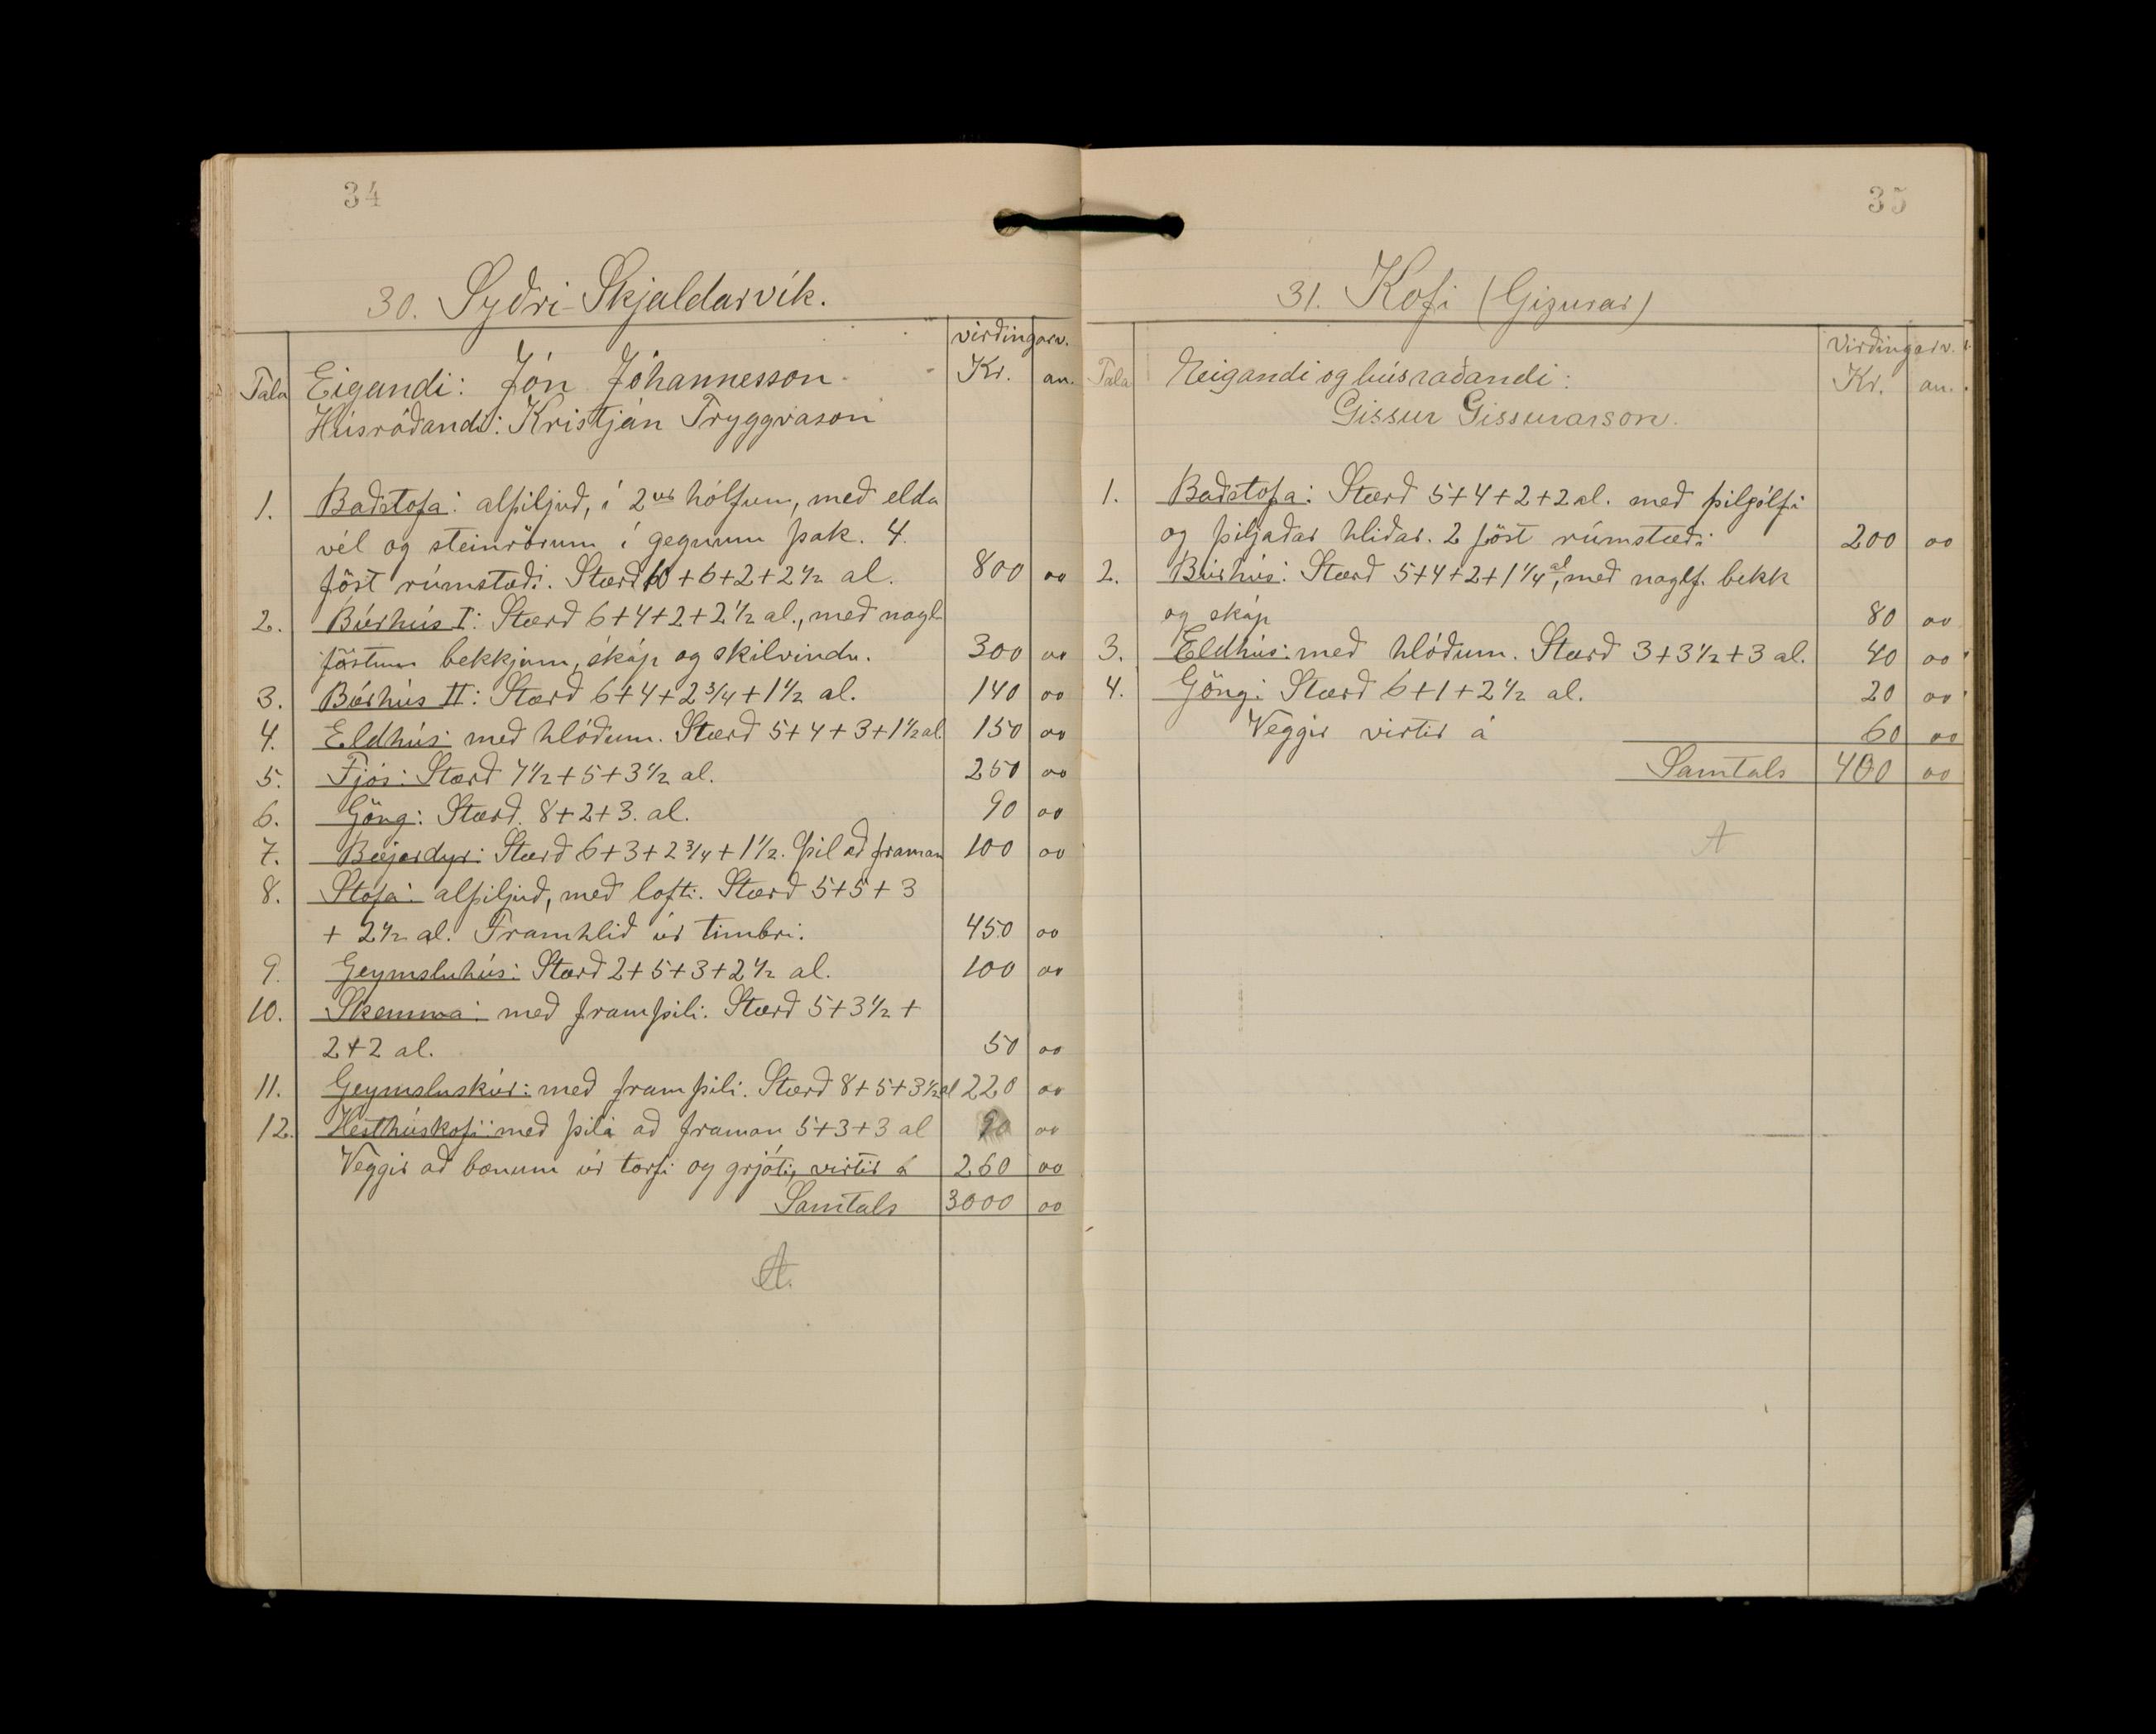 34
30. Syðri-Skjaldarvík.
virðingarv.
Tala Eigandi: Jón Jóhannesson. Kr. au.
Húsráðandi: Kristján Tryggvason
1. Baðstofa: alþiljuð, í 2ur hólfum, með elda
vél og steinrörum í gegnum þak. 4.
föst rúmstæði. Stærð 10+6+2+2½ al. 800 00
2. Búrhús I: Stærð 6+4+2+2½ al., með nagl-
föstum bekkjum, skáp og skilvindu. 300 00
3. Búrhús II: Stærð 6+4+2¾+1½ al. 140 00
4. Eldhús: með hlóðum. Stærð 5+4+3+1½ al. 150 00
5. Fjós: Stærð 7½+5+3½ al. 250 00
6. Göng: Stærð. 8+2+3. al. 90 00
7. Bæjardyr: Stærð 6+3+2¾+1½. Þil að framan 100 00
8. Stofa: alþiljuð, með lofti. Stærð 5+5+3
+ 2½ al. Framhlið úr timbri. 450 00
9. Geymsluhús: Stærð 2+5+3+2½ al. 100 00
10. Skemma: með framþili. Stærð 5+3½+
2+2 al. 50 00
11. Geymsluskúr: með framþili. Stærð 8+5+3½ al 220 00
12. Hesthúskofi: með þili að framan 5+3+3 al 90 00
Veggir að bænum úr torfi og grjóti, virtir á 260 00
Samtals 3000 00
A.
35
31. Kofi (Gizurar)
Virðingarv.
Tala Eeigandi og húsraðandi: Kr. au.
Gissur Gissurarson.
1. Baðstofa: Stærð 5+4+2+2 al. með þilgólfi
og þiljaðar hliðar. 2 föst rúmstæði 200 00
2. Búrhús: Stærð 5+4+2+1¼ al, með naglf. bekk
og skáp 80 00
3. Eldhús: með hlóðum. Stærð 3+3½+3 al. 40 00
4. Göng: Stærð 6+1+2½ al. 20 00
Veggir virtir á 60 00
Samtals 400 00
A